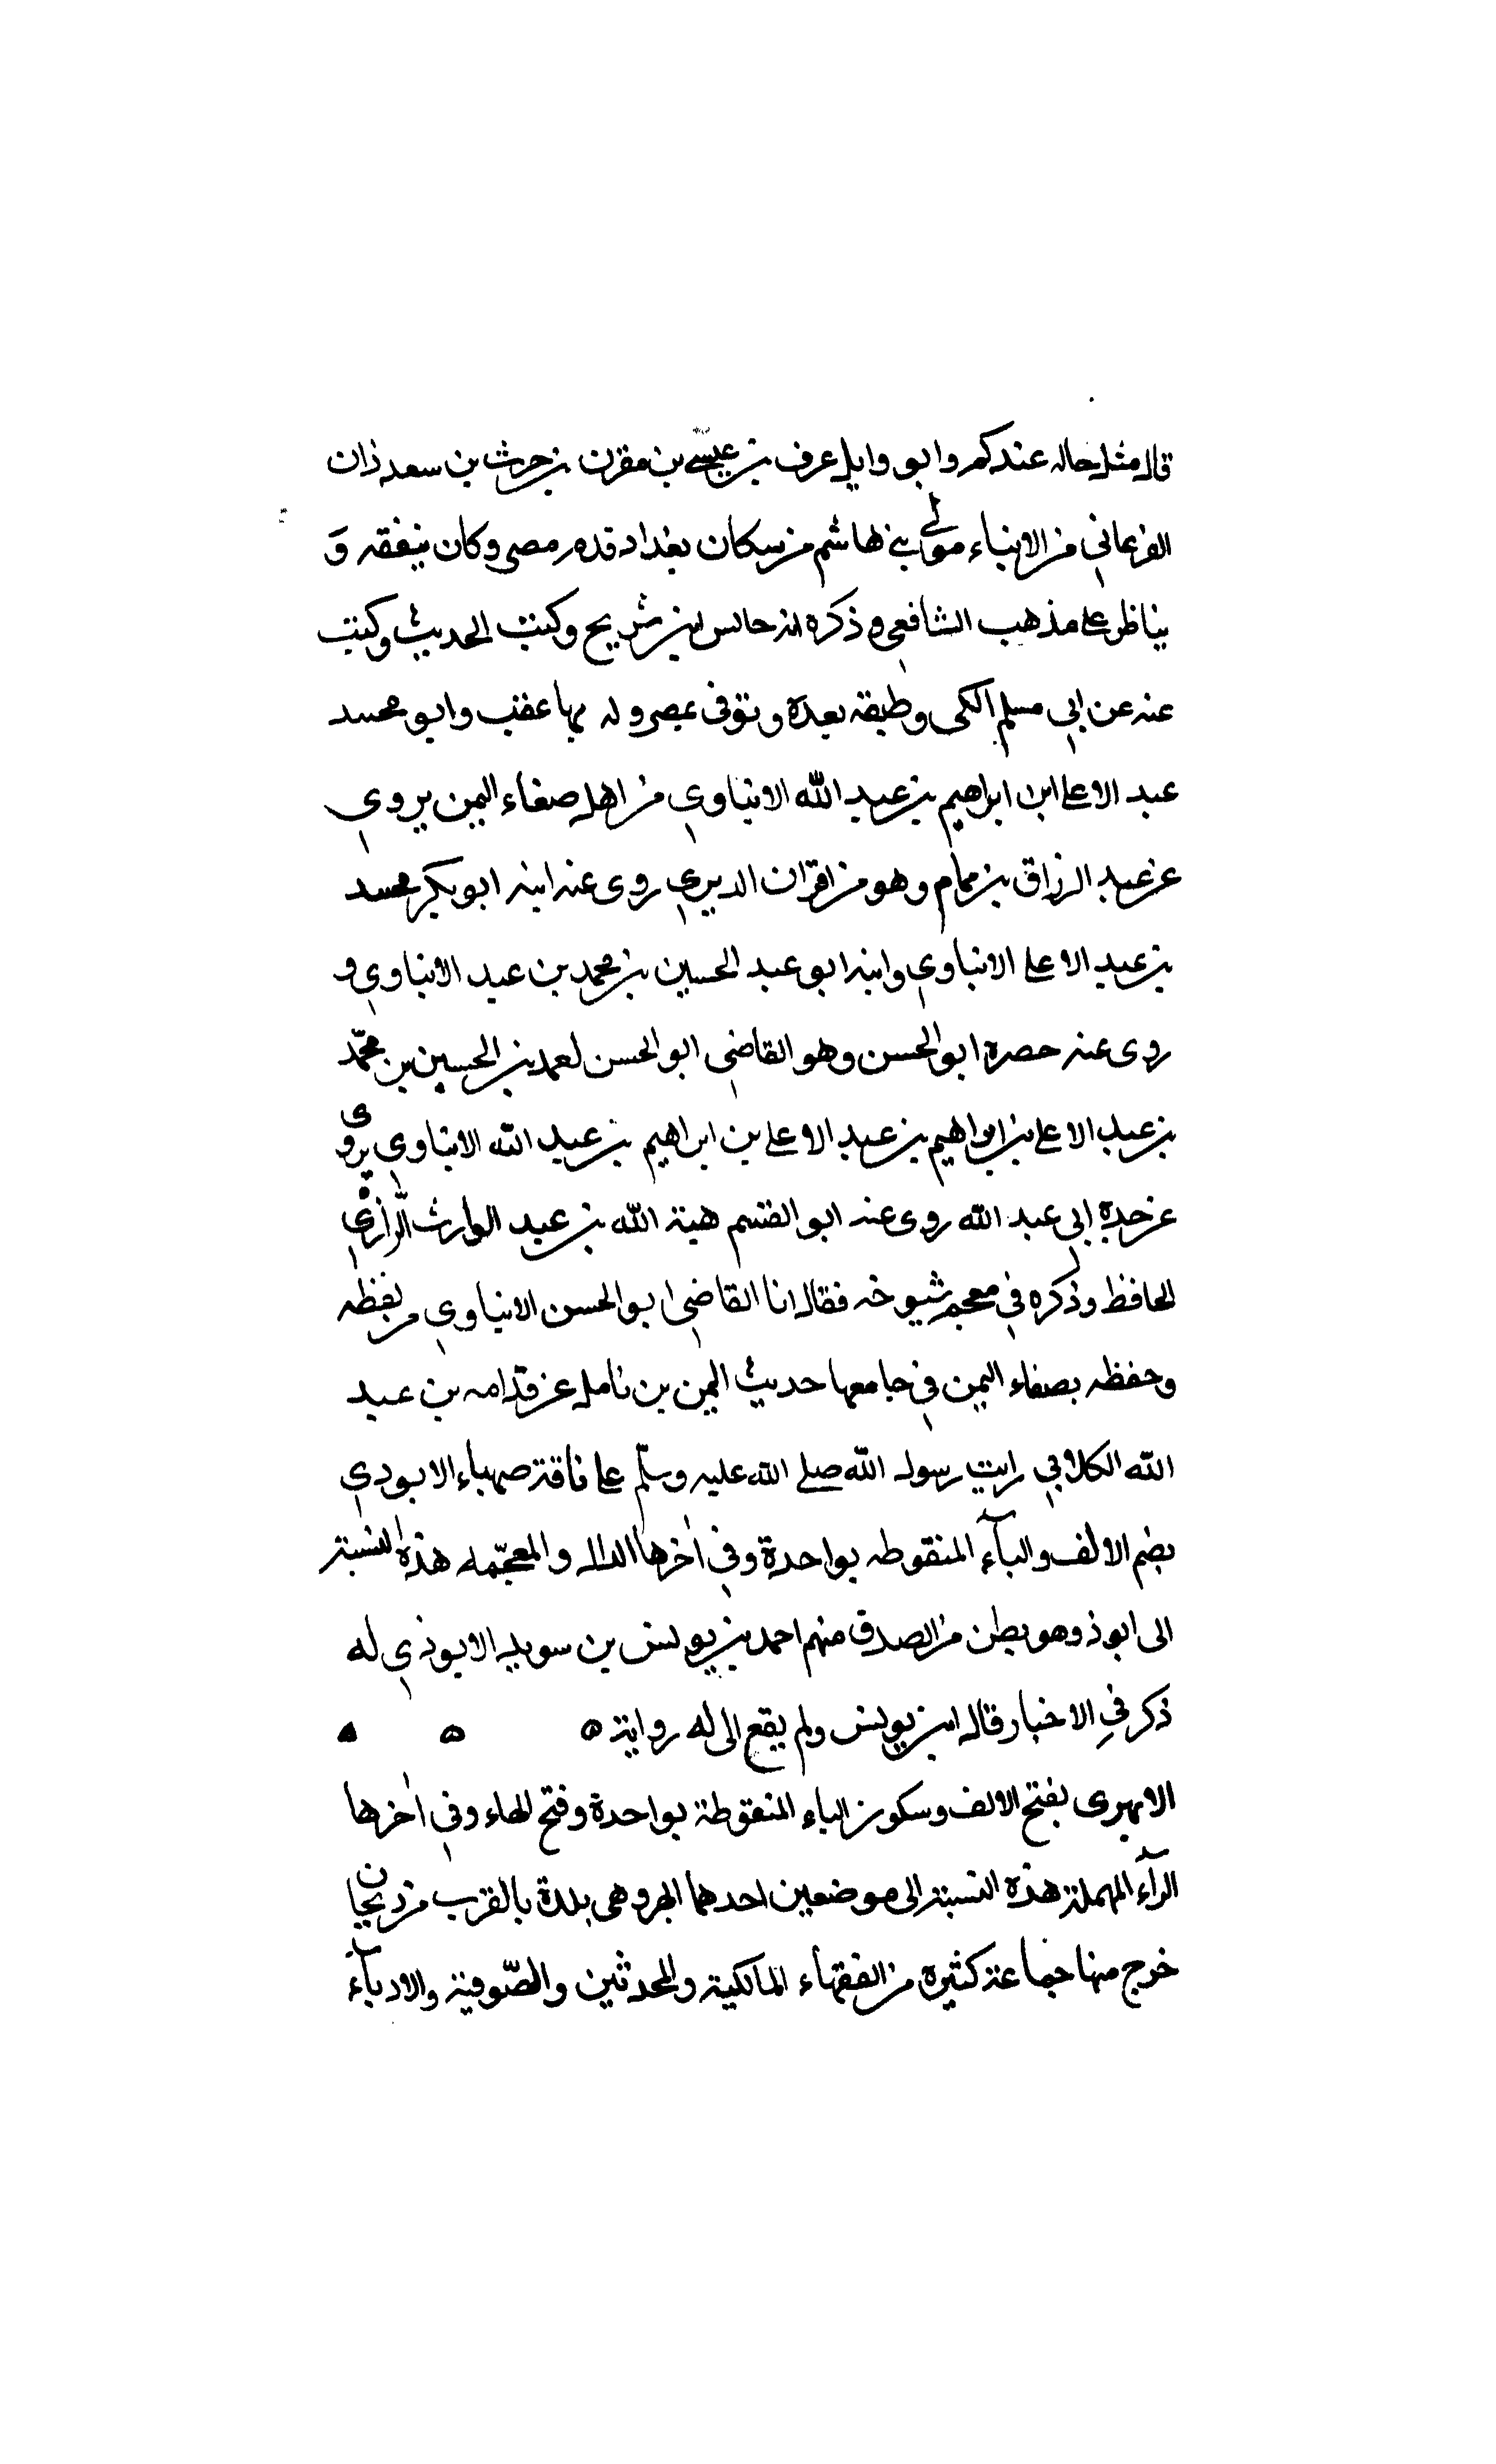 قال مثل حاله عندكم وابو وايل عرف بن عيسى بن مقرن بن حرث بن سعد ذان
الفرغاني من الابناء مولى بني هاشم من سكان بغداد قدم مصر وكان يتفقه و
يناظر على مذهب الشافعي وذكره انه جالس ابن شريح وكتبت الحديث وكتبت
عنه عن ابي مسلم الكى وطبقه بعده وتوفى بمصر وله بها عقب وابو محمد
عبد الاعلى ابن ابراهيم بن عبد الله الابناوي من اهل صنعاء اليمن يروي
عن عبد الرزاق بن همام وهو من اقران الدبري روى عنه ابنه ابو بكر محمد
بن عبد الاعلى الابناوي وابنه ابو عبد الحسين بن محمد بن عبد الابناوي و
روى عنه حصره ابو الحسن وهو القاضي ابو الحسن لعمد بن الحسين بن محمّد
بن عبد الاعلى بن ابراهيم بن عبد الاعلى بن ابراهيم بن عبد الله الابناوي يروى
عن جده ابي عبد الله روى عنه ابو القسم هبة الله بن عبد الوارث الرازي
الحافظ وذكره في معجم شيوخه فقال انا القاضي ابو الحسن الابناوي من لفظه
وحفظه بصنعاء اليمن في جامعها حديث ايمن بن نامل عن قدامه بن عبد
الله الكلابي رايت رسول الله صلى الله عليه وسلّم على ناقة صهباء الابودي
بضم الالف والبآء المنقوطه بواحدة وفي اخرها الدال والمعجّمه هذه النسبة
الى ابوذ وهو بطن من الصدق منهم احمد بن يونس بن سويد الابوذي له
ذكر في الاخبار قال ابن يونس ولم يقع الى له رواية ه ه ه
الابهرى بفتح الالف وسكون الباء المنقوطة بواحدة وفتح الهاء وفي اخرها
الرآء المهملة هذه النسبة الى موضعين احدهما ابهر وهي بلدة بالقرب من زنجان
خرج منها جماعة كثيرة من الفقهاء المالكية والمحدثين والصّوفية والادبآء